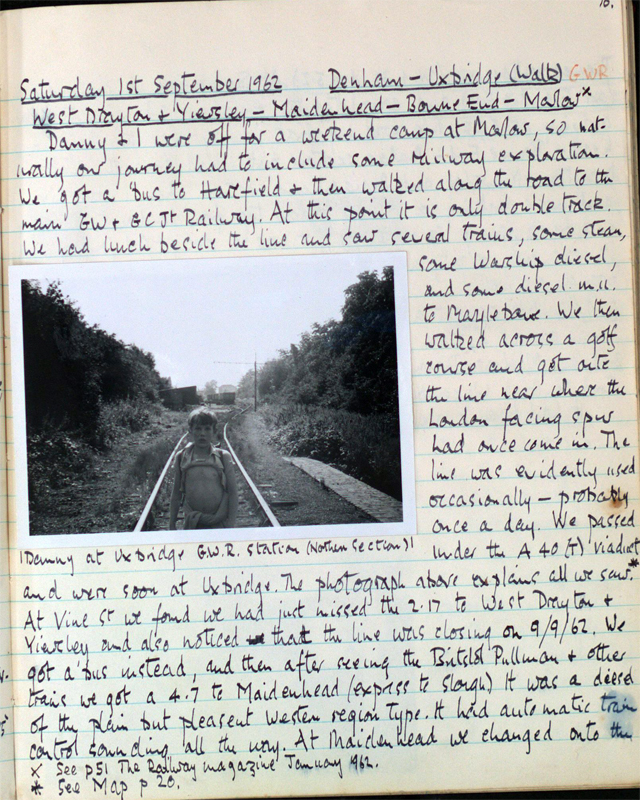 16.
Saturday 1st September 1962 Denham – Uxbridge (Walk) GWR
West Drayton & Yiewsley – Maidenhead – Bourne End – Marlow x
Danny & I were off for a weekend camp at Marlow, so nat-
urally our journey had to include some railway exploration.
We got a 'bus to Harefield & then walked along the road to the
main GW & GC Jt Railway. At this point it is only double track.
We had lunch beside the line and saw several trains, some steam,
some Warship diesel,
and some diesel m.u.
to Marylebone. We then
walked across a golf
course and got onto
the line near where the
London facing spur
had once come in. The
line was evidently used
occasionally – probably
once a day. We passed
under the A 40 (T) viaduct
Danny at Uxbridge G.W.R. Station (Nothern Section)
and were soon at Uxbridge. The photograph above explains all we saw. *
At Vine St we found we had just missed the 2.17 to West Drayton &
Yiewsley and also noticed that the line was closing on 9/9/62. We
got a 'bus instead, and then after seeing the Bristol Pullman & other
trains we got a 4.7 to Maidenhead (express to Slough) It was a diesel
of the plain but pleasent Western region type. It had automatic train
control sounding all the way. At Maidenhead we changed onto the
x See p51 The Railway magazine January 1962.
* See Map p 20.